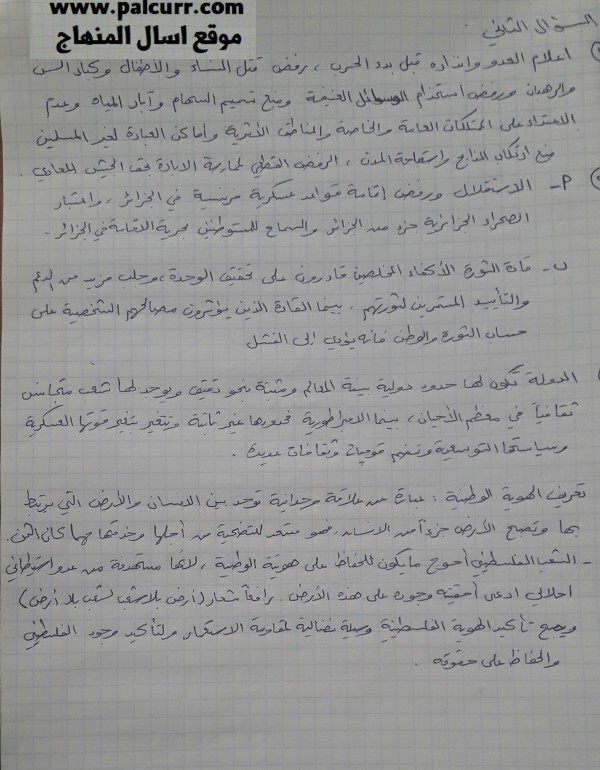 www.palcurr.com
موقع اسال المنهاج
السؤال الثاني
اعلام العدو وانذاره قبل بدء الحرب ، رفض قتل النساء والاطفال وكبار السن
والرهبان ورفض استخدام الوسائل العنيفة ومنع تسميم السهام وآبار المياه وعدم
الاعتداء على الممتلكات العامة والخاصة والمناطق الأثرية وأماكن العبادة لغير المسلمين
منع ارتكاب المذابح واستباحة المدن ، الرفض القطعي لممارسة الابادة بحق الجيش المعادي .
أ- الاستقلال ورفض إقامة قواعد عسكرية فرنسية في الجزائر ، واعتبار
الصحراء الجزائرية جزء من الجزائر والسماح للمستوطنين بحرية الاقامة في الجزائر .
ب- قادة الثورة الأكفاء المخلصين قادرون على تحقيق الوحدة ، وجلب مزيد من الدعم
والتأييد المستمرين لثورتهم ، بينما القادة الذين يؤثرون مصالحهم الشخصية على
حساب الثورة والوطن فانه يؤدي الى الفشل
الدولة تكون لها حدود دولية بينة المعالم ومثبتة بنحو دقيق ويوجد لها شعب متجانس
ثقافياً في معظم الأحيان ، بينما الامبراطورية فحدودها غير ثابتة وتتغير بتغير قوتها العسكرية
وسياستها التوسعية وتضم قوميات وثقافات عديدة .
تعريف الهوية الوطنية : عبارة عن علاقة وجدانية توحد بين الانسان والأرض التي يرتبط
بها وتصبح الأرض جزءاً من الانسان فهو مستعد للتضحية من أجلها وخدمتها مهما كان الثمن .
- الشعب الفلسطيني أحوج ما يكون للحفاظ على هويته الوطنية ، لانها مستهدفة من عدو استيطاني
احلالي ادعى أحقيته وجوده على هذه الأرض رافعاً شعار (أرض بلا شعب لشعب بلا أرض)
ويصبح تأكيد الهوية الفلسطينية وسيلة نضالية لمقاومة الاستعمار ولتأكيد وجود الفلسطيني
والحفاظ على حقوقه .